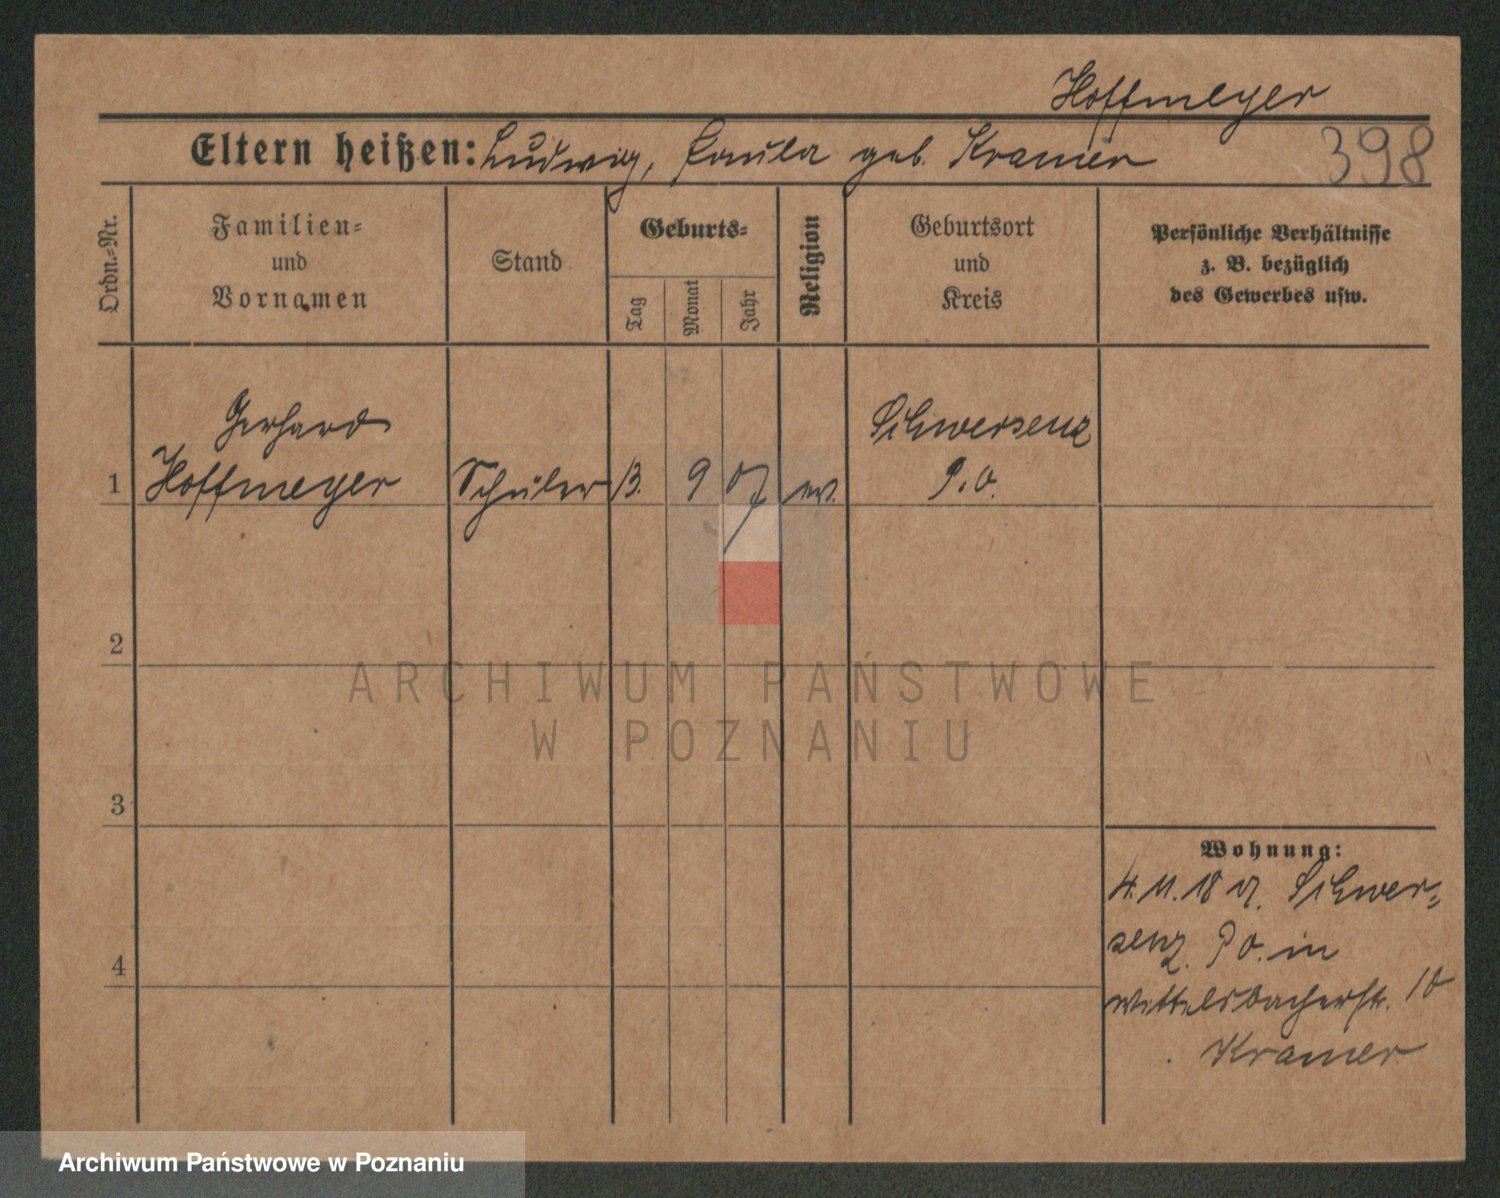 Hoffmeyer
398
Eltern heißen: Ludwig, Paula geb. Kramer
Ordn.-Nr.
Familien-
und
Vornamen
Stand
Geburts-
Tag
Monat
Jahr
Religion
Geburtsort
und
Kreis
Persönliche Verhältnisse
z. B. bezüglich
des Gewerbes usw.
Gerhard
Schwersenz
1 Hoffmeyer Schüler 13. 9 07 ev. P.O.
2
ARCHIWUM PAŃSTWOWE
W POZNANIU
3
4
Wohnung:
4.11.18 v. Schwer-
senz. P O. in
Wittelsbacherstr. 10
Kramer
Archiwum Państwowe w Poznaniu